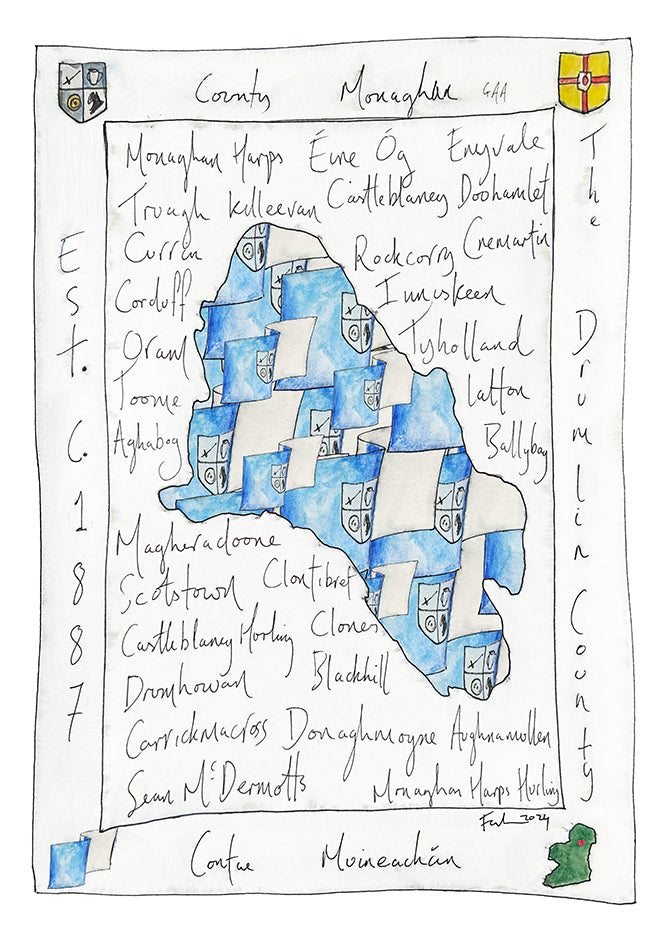 County Monaghan GAA
Monaghan Harps Éire Óg Emyvale
Truagh Killeevan Castleblaney Doohamlet
Currin Rockcorry Cremartin
Corduff Inniskeen
Oram Tyholland
Toome Latton
Aghabog Ballybay
Magheracloone
Scotstown Clontibret
Castleblaney Hurling Clones
Drumhowan Blackhill
Carrickmacross Donaghmoyne Aughnamullen
Sean McDermotts Monaghan Harps Hurling
2024
Est. C. 1887
The Drumlin County
Contae Muineachán